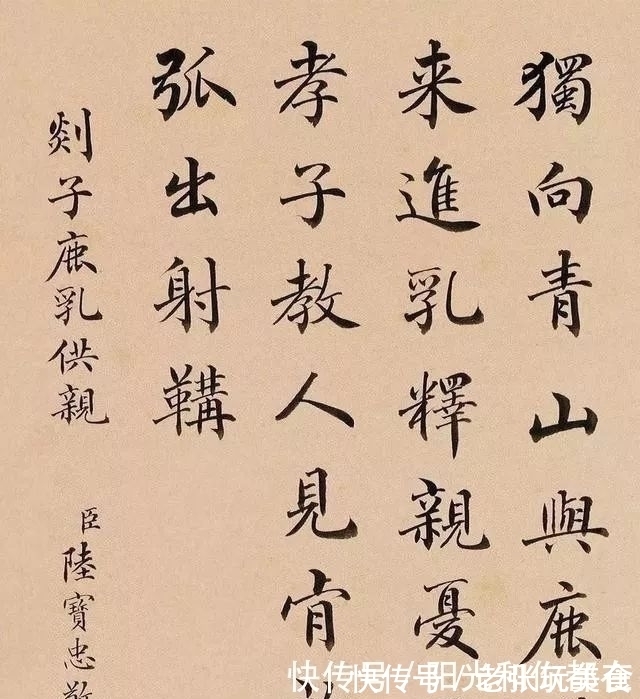 獨向青山與鹿
来進乳釋親憂
孝子教人見肯
弧出射鞲
剡子鹿乳供親
臣陸寶忠
快传号/